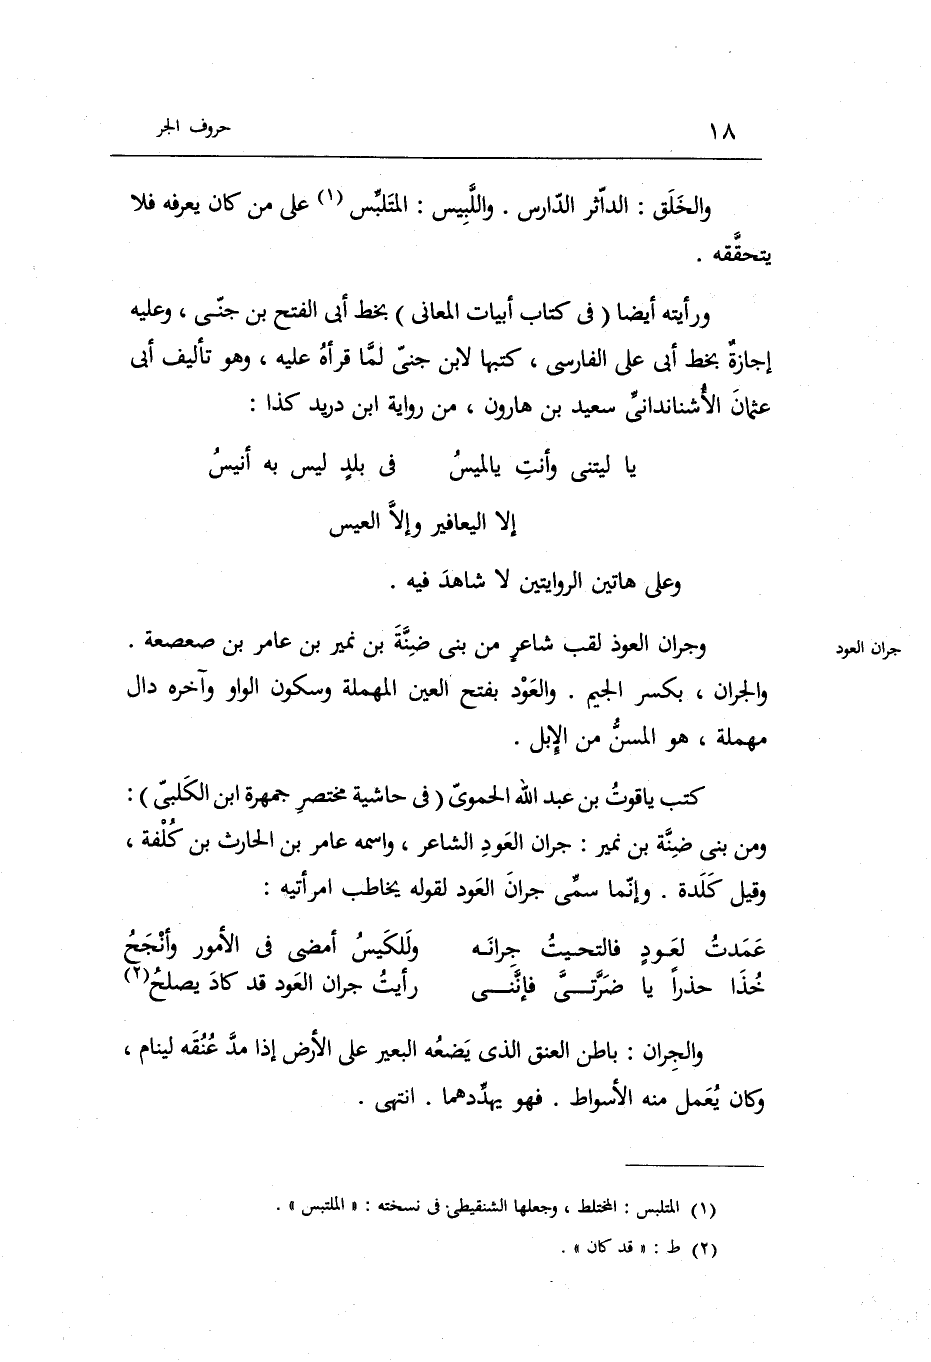 ١٨
حروف الجر
والخَلَق : الداّثر الدّارس . واللَّبِيس : المتَلبِّس (١) على من كان يعرفه فلا
يتحقَّقه .
ورأيته أيضا ( فى كتاب أبيات المعانى ) بخط أبى الفتح بن جنّى ، وعليه
إجازةٌ بخط أبى على الفارسى ، كتبها لابن جنىّ لمَّا قرأهُ عليه ، وهو تأليف أبى
عثمانَ الأُشناندانىِّ سعيد بن هارون ، من رواية ابن دريد كذا :
يا ليتنى وأنتِ يالميسُ فى بلدٍ ليس به أنيسُ
إلا اليعافير وإلاَّ العيس
وعلى هاتين الروايتين لا شاهدَ فيه .
وجران العوذ لقب شاعرٍ من بنى ضِنَّةَ بن نمير بن عامر بن صعصعة .
جران العود
والجران ، بكسر الجيم . والعَوْد بفتح العين المهملة وسكون الواو وآخره دال
مهملة ، هو المسنُّ من الإِبل .
كتب ياقوتُ بن عبد الله الحموىّ ( فى حاشية مختصرِ جمهرة ابن الكَلبىّ ) :
ومن بنى ضِنَّة بن نمير : جران العَودِ الشاعر ، واسمه عامر بن الحارث بن كُلْفة ،
وقيل كَلَدة . وإنّما سمِّى جرانَ العَود لقوله يخاطب امرأتيه :
عَمَدتُ لعَودٍ فالتحيتُ جِرانَه ولَلكَيسُ أمضى فى الأمور وأنْجَحُ
خُذَا حذراً يا ضَرَّتىَّ فإنَّنى رأيتُ جران العَود قد كادَ يصلحُ (٢)
والجِران : باطن العنق الذى يَضعُه البعير على الأرض إذا مدَّ عُنُقَه لينام ،
وكان يُعَمل منه الأسواط . فهو يهدِّدهما . انتهى .
(١) المتلبس : المختلط ، وجعلها الشنقيطى فى نسخته : « الملتبس » .
(٢) ط : « قد كان » .